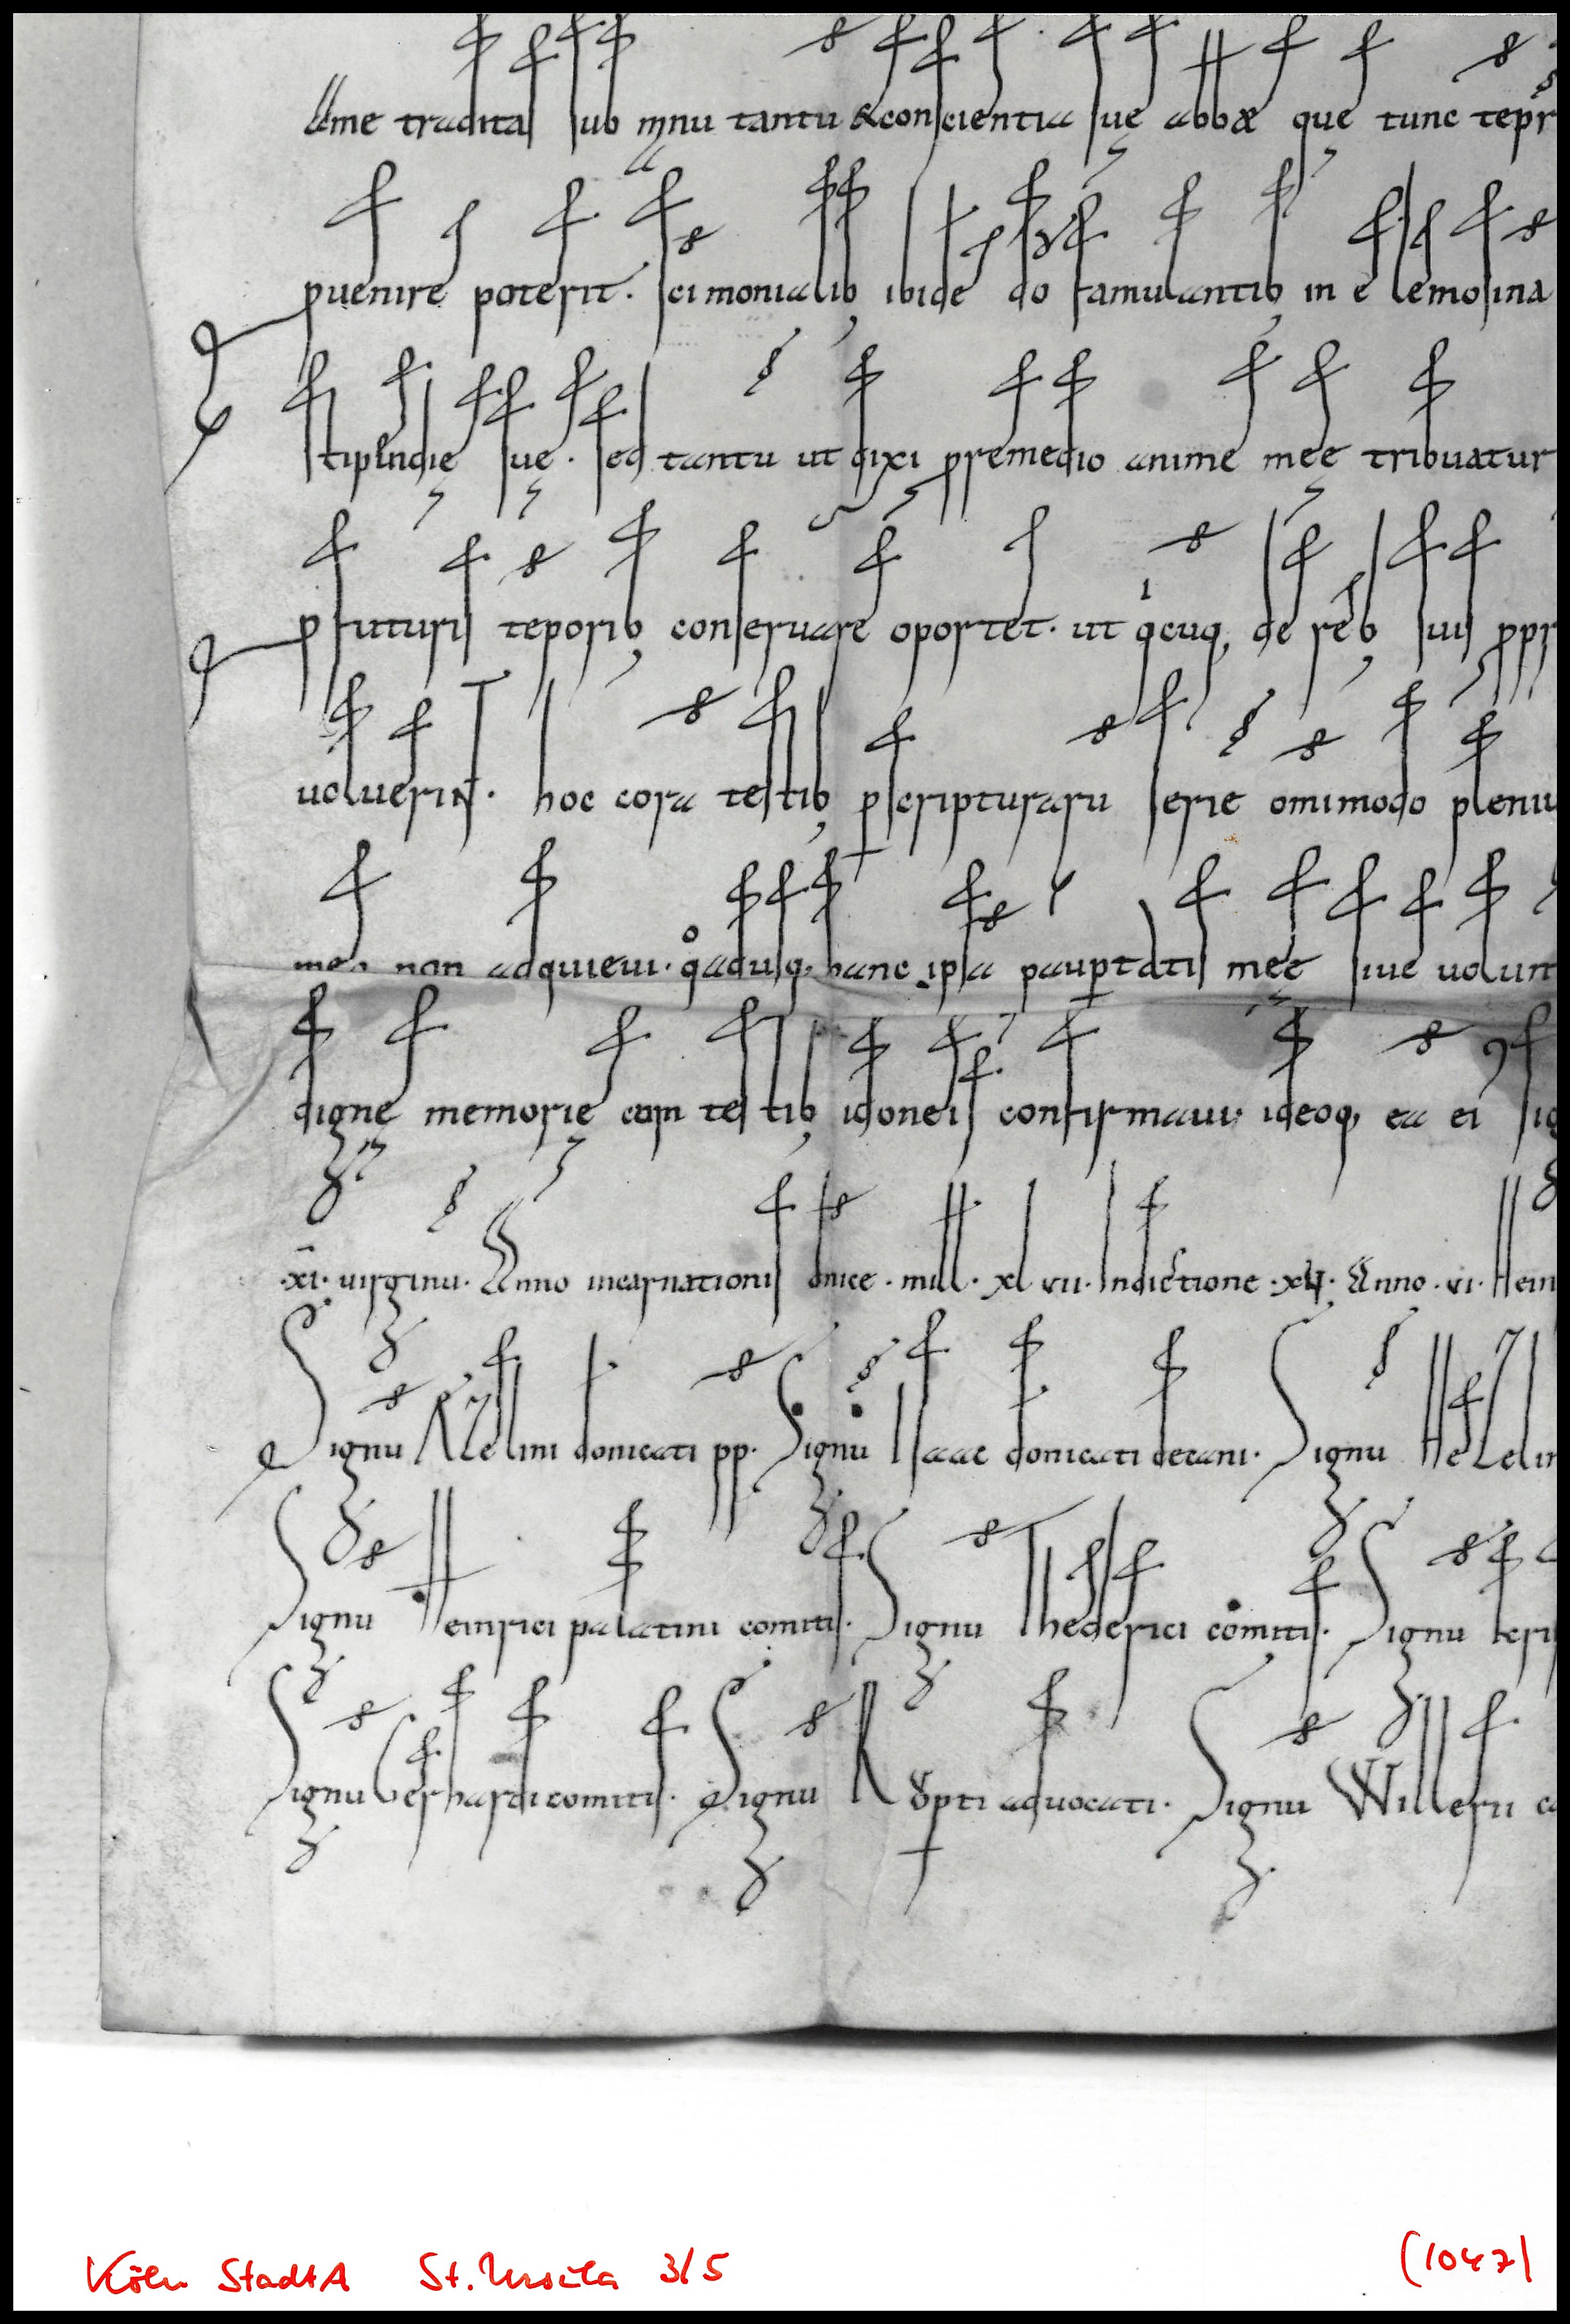 Ame tradita sub mnu tantu & conscientia suę abbæ quę tunc tepr
puenire poterit. sci monialib; ibide do famulantib; in elemosina
stipendię suę. sed tantu ut dixi premedio anime meę tribuatur
p futuris teporib; conseruare oportet. ut qicuq; de reb; suis ppr
uoluerint. hoc cora testib; p scripturaru serie omimodo pleniu
mea non adquieui. qoadusq; hanc ipsa pauptatis meę siue uolunt
digne memorie cam testib; idoneis confirmaui. ideoq; ea ei sig
.xi. uirginu. Anno incarnationis dnice. mill. xl vii. Indictione .xv. Anno .vi. Hein
Signu Rezelini donicati pp. Signu Isaac donicati decani. Signu Hezelin
Signu Heinrici palatini comitis. Signu Thederici comitis. Signu
Signu Gerhardi comitis. Signu Ruopti aduocati. Signu Willeri co
Köln StadtA St. Ursula 3/5 (1047)